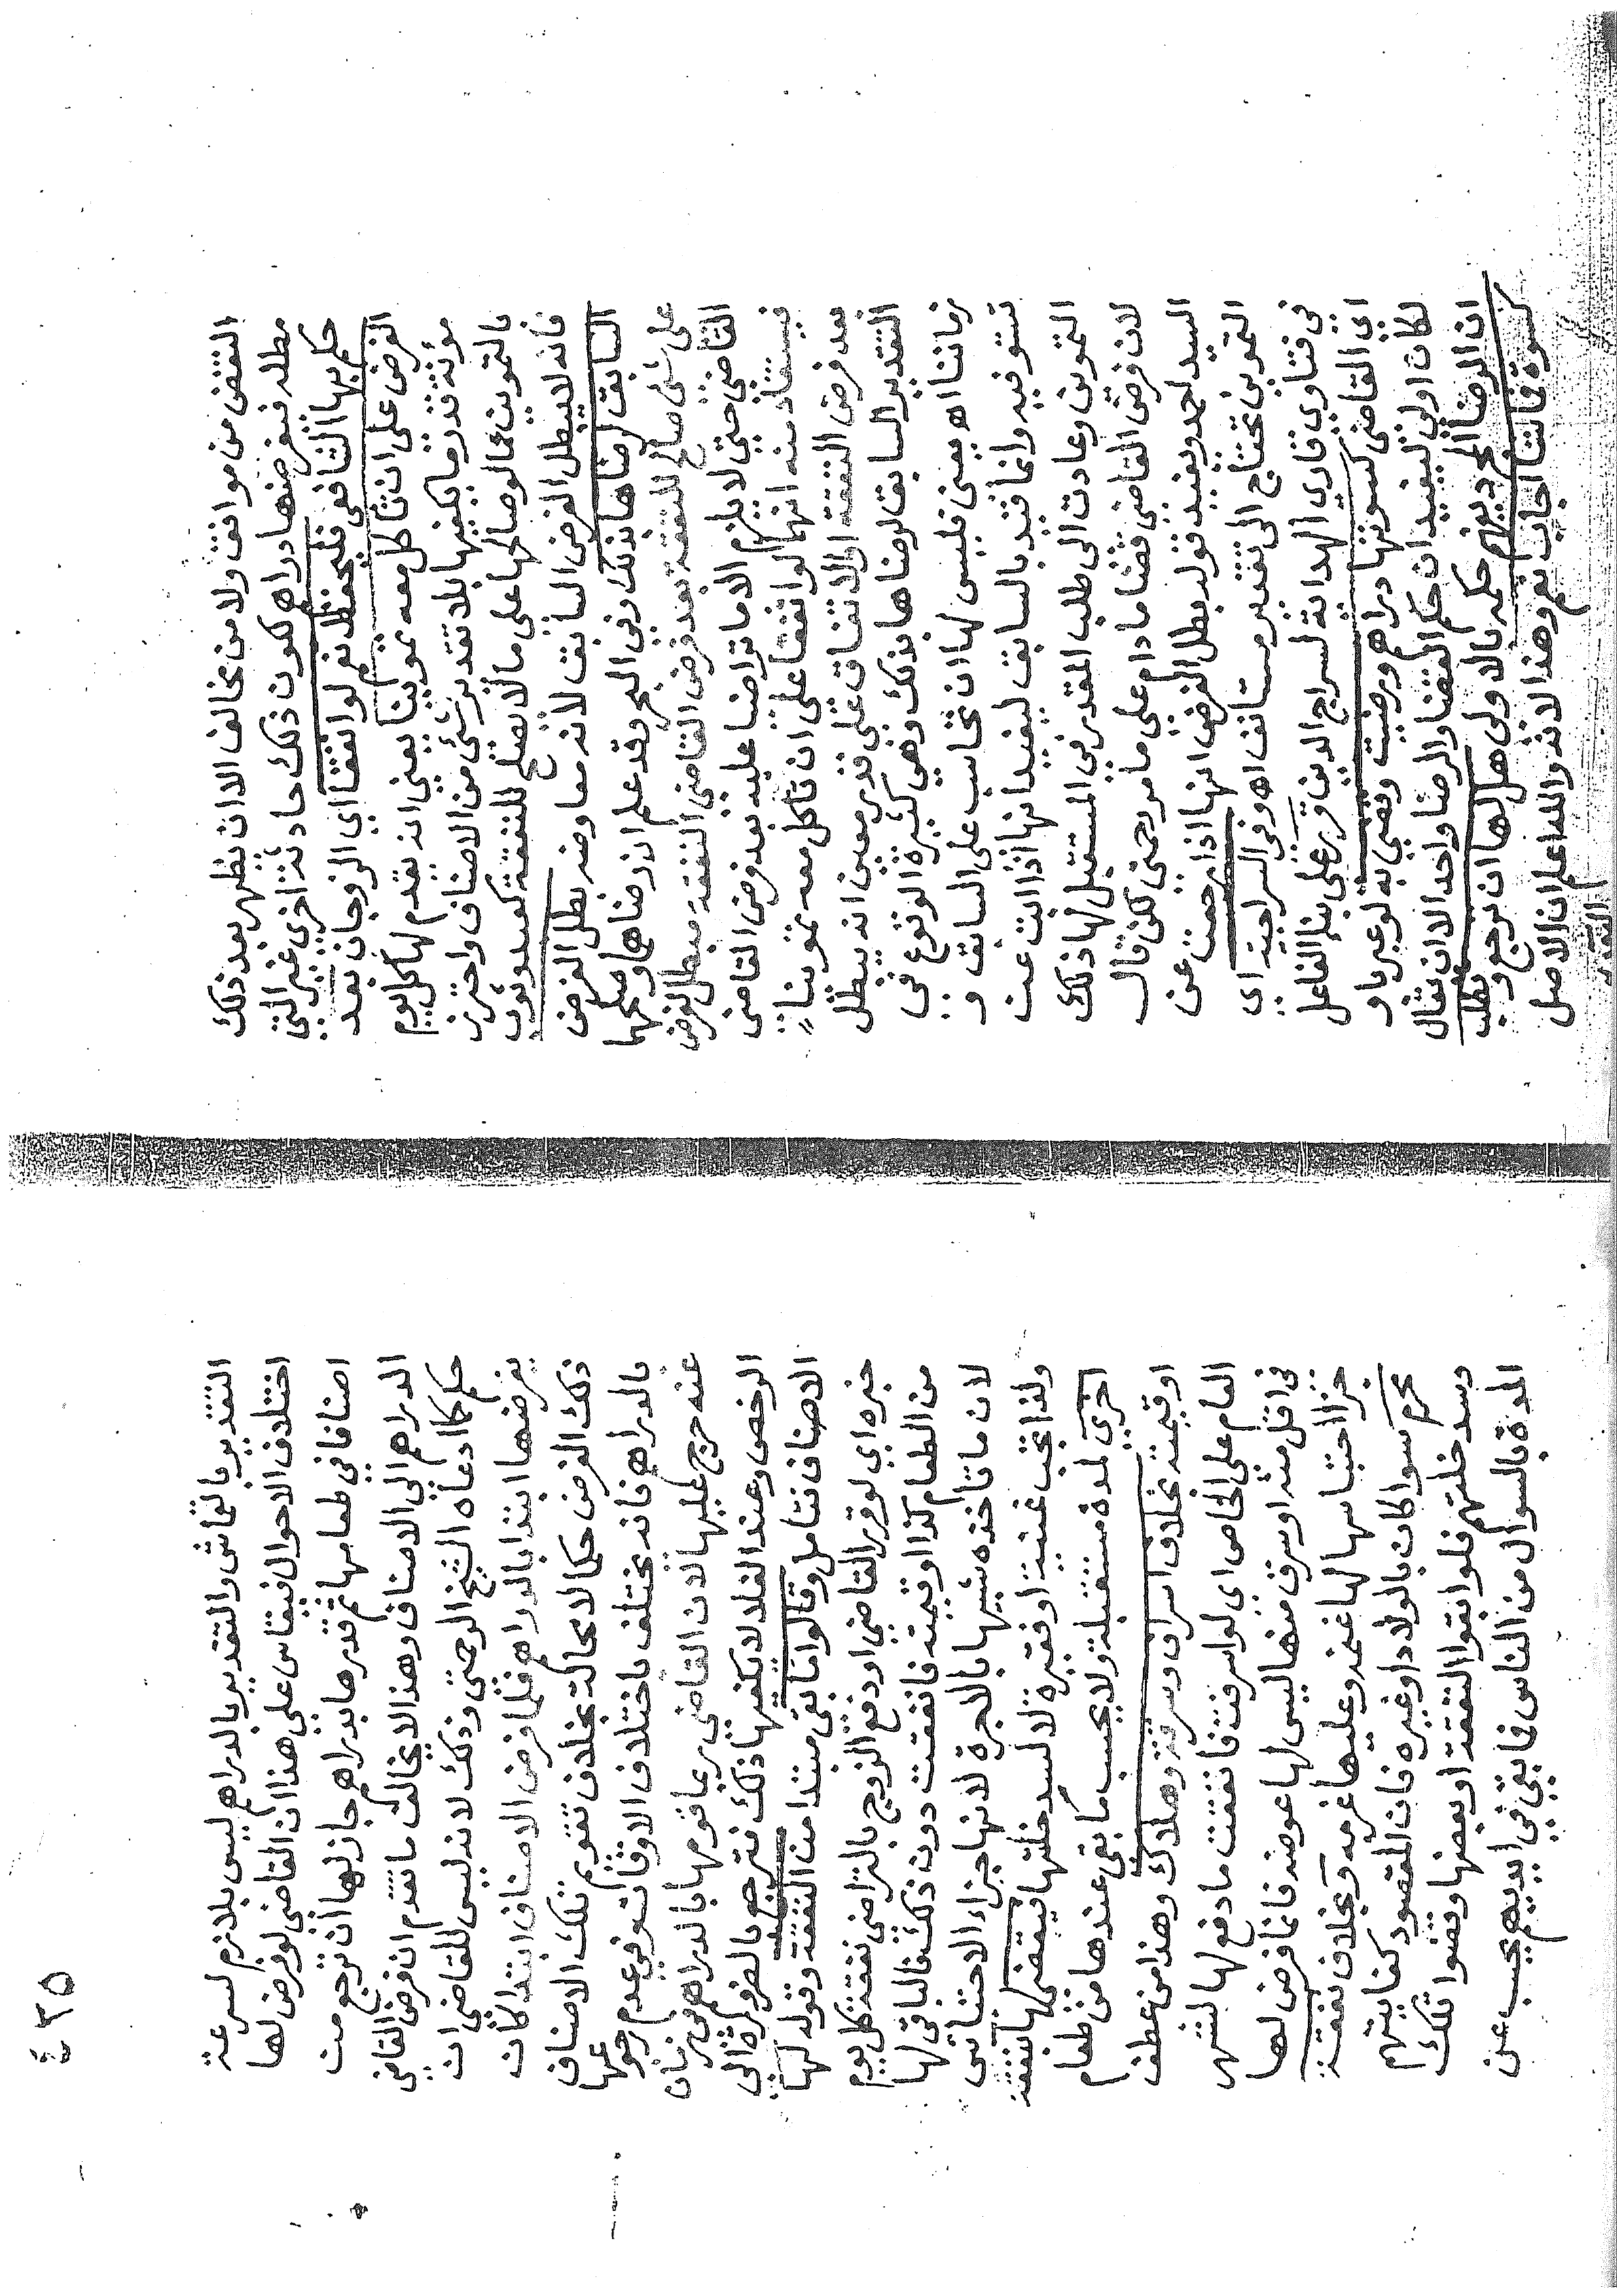 النقض من موافق ولا من مخالف الا ان تظهر بعد ذلك
مطله فيفرضها دراهم لكون ذلك حادثة اخرى غير التي
حكم بها الشافعي فليحفظ نعم لو اتفقا اي الزوجان بعد
الفرض على ان تاكل معه تموينا يعني انه يقدم لها كل يوم
مؤنة قدر ما يكفيها بلا تقدير شئ من الاصناف واحترز
بالتموين عما لو صالحها على ما لا يصلح للنفقة كعبد وثوب
فانه لا يبطل الفرض السابق لانه معاوضة بطل الفرض
السابق لرضاها بذلك وفي البحر وقد علم ان رضاها وصلحهما
على شئ صالح للنفقة بعد فرض القاضي النفقة مبطل لفرض
القاضي حتى لا يلزم الا ما تراضيا عليه بعد فرض القاضي
فيستفاد منه انهما لو اتفقا على ان تاكل معه تموينا
بعد فرض النفقة او الاتفاق على قدر معين انه يبطل
التقدير السابق لرضاها بذلك وهي كثيرة الوقوع في
زماننا اه يعني فليس لها ان تحاسب على السابق و
تستوفيه وانما قيد بالسابق ليفيد انها اذا ابت عن
التموين وعادت الى طلب المقدر في المستقبل لها ذلك
لان فرض القاضي قضا ما دام على ما مر رحمتي لكن قال
السيد احمد ويفيد قوله بطل الفرض انها اذا رجعت عن
التموين تحتاج الى تقدير مستانف اه وفي السراجية اي
في فتاوي قاري الهداية لسراج الدين قرر على بناء الفاعل
اي القاضي كسوتها دراهم ورضيت وقضي به لو عبر باو
لكان اولى ليفيد ان حكم القضا والرضا واحد الا ان يقال
ان الرضا المجرد يفهم حكمه بالاولى هل لها ان ترجع وتطلب
كسوة قماشا اجاب نعم وهذا لانه والله اعلم ان الاصل
التقدير
٤٣٥
التقدير بالقماش والتقدير بالدراهم ليس بلازم لسرعة
اختلاف الاحوال فيقاس على هذا ان القاضي لو فرض لها
اصنافا في طعامها ثم قدرها بدراهم جاز لها ان ترجع من
الدراهم الى الاصناف وهذا لا يخالف ما تقدم ان فرض القاضي
حكم كما ادعاه الشيخ الرحمتي وذلك لانه ليس للقاضي ان
يفرضها ابتدا بالدراهم فلما فرض الاصناف ابتدا كان
ذلك الفرض حكما لا محالة بخلاف تقويم تلك الاصناف
بالدراهم فانه يختلف باختلاف الاوقات وفي عدم رجوعها
عنه حرج عليها لان القاضي ربما قومها بالدراهم في زمان
الرخص وعند الغلا لا يكفيها ذلك فترجع بالضرورة الى
الاصناف فتامل وقالوا ما بقي مبتدا من النفقة وقوله لها
خبره اي لو قرر القاضي او دفع الزوج بالتراضي نفقة كل يوم
من الطعام كذا او قيمته فانفقت دون ذلك فالباقي لها
لان ما تاخذه شبيها بالاجرة لانها جزاء الاحتباس
ولذا تجب غنية او فقيرة لا لسد خلتها فيقضى لها بنفقة
اخرى لمدة مستقبلة ولا يحسب ما بقي عندها من طعام
او قيمته بخلاف اسراف وسرقة وهلاك وهذا من عطف
العام على الخاص اي لو اسرفت فانفقت ما دفع لها لشهر
في اقل منه او سرق منها ليس لها عوضه فانما فرض لها
جزا احتباسها لها غنمه وعليها غرمه وبخلاف نفقة
محرم سوا كان بالولاد او غيره فان المقصود كفايتهم
وسد خلتهم فلو ابقوا النفقة او بعضها وقضوا تلك
المدة بالسوال من الناس فما بقي في ايديهم يحسب عن